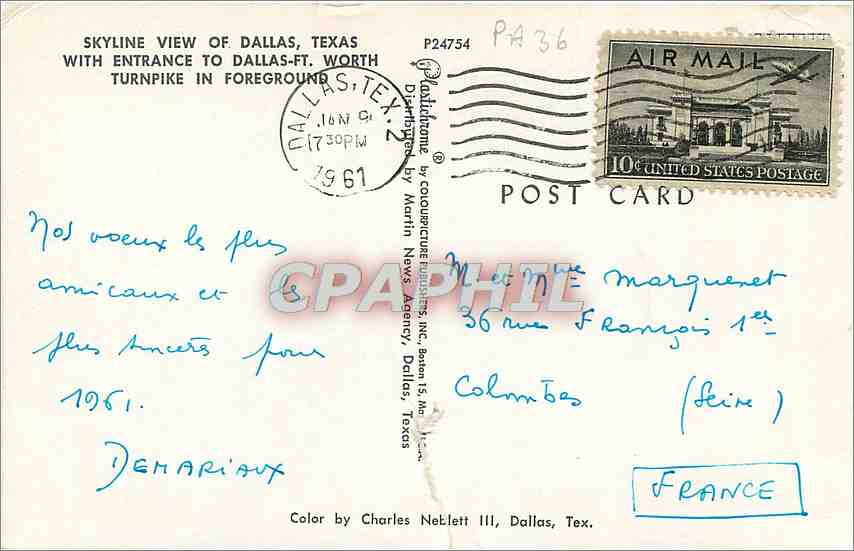 SKYLINE VIEW OF DALLAS, TEXAS
WITH ENTRANCE TO DALLAS-FT. WORTH
TURNPIKE IN FOREGROUND
P24754
PA36
DALLAS, TEX. 2
JAN 9
7 30 PM
1961
AIR MAIL
10¢ UNITED STATES POSTAGE
POST CARD
Plastichrome ® by COLOURPICTURE PUBLISHERS, INC., Boston 15,
Distributed by Martin News Agency, Dallas, Texas
Nos voeux les plus
amicaux et les
plus sincères pour
1961.
DEMARIAUX
M et Mme Marquenet
36 rue François 1er
Colombes (Seine)
FRANCE
CPAPHIL
Color by Charles Neblett III, Dallas, Tex.